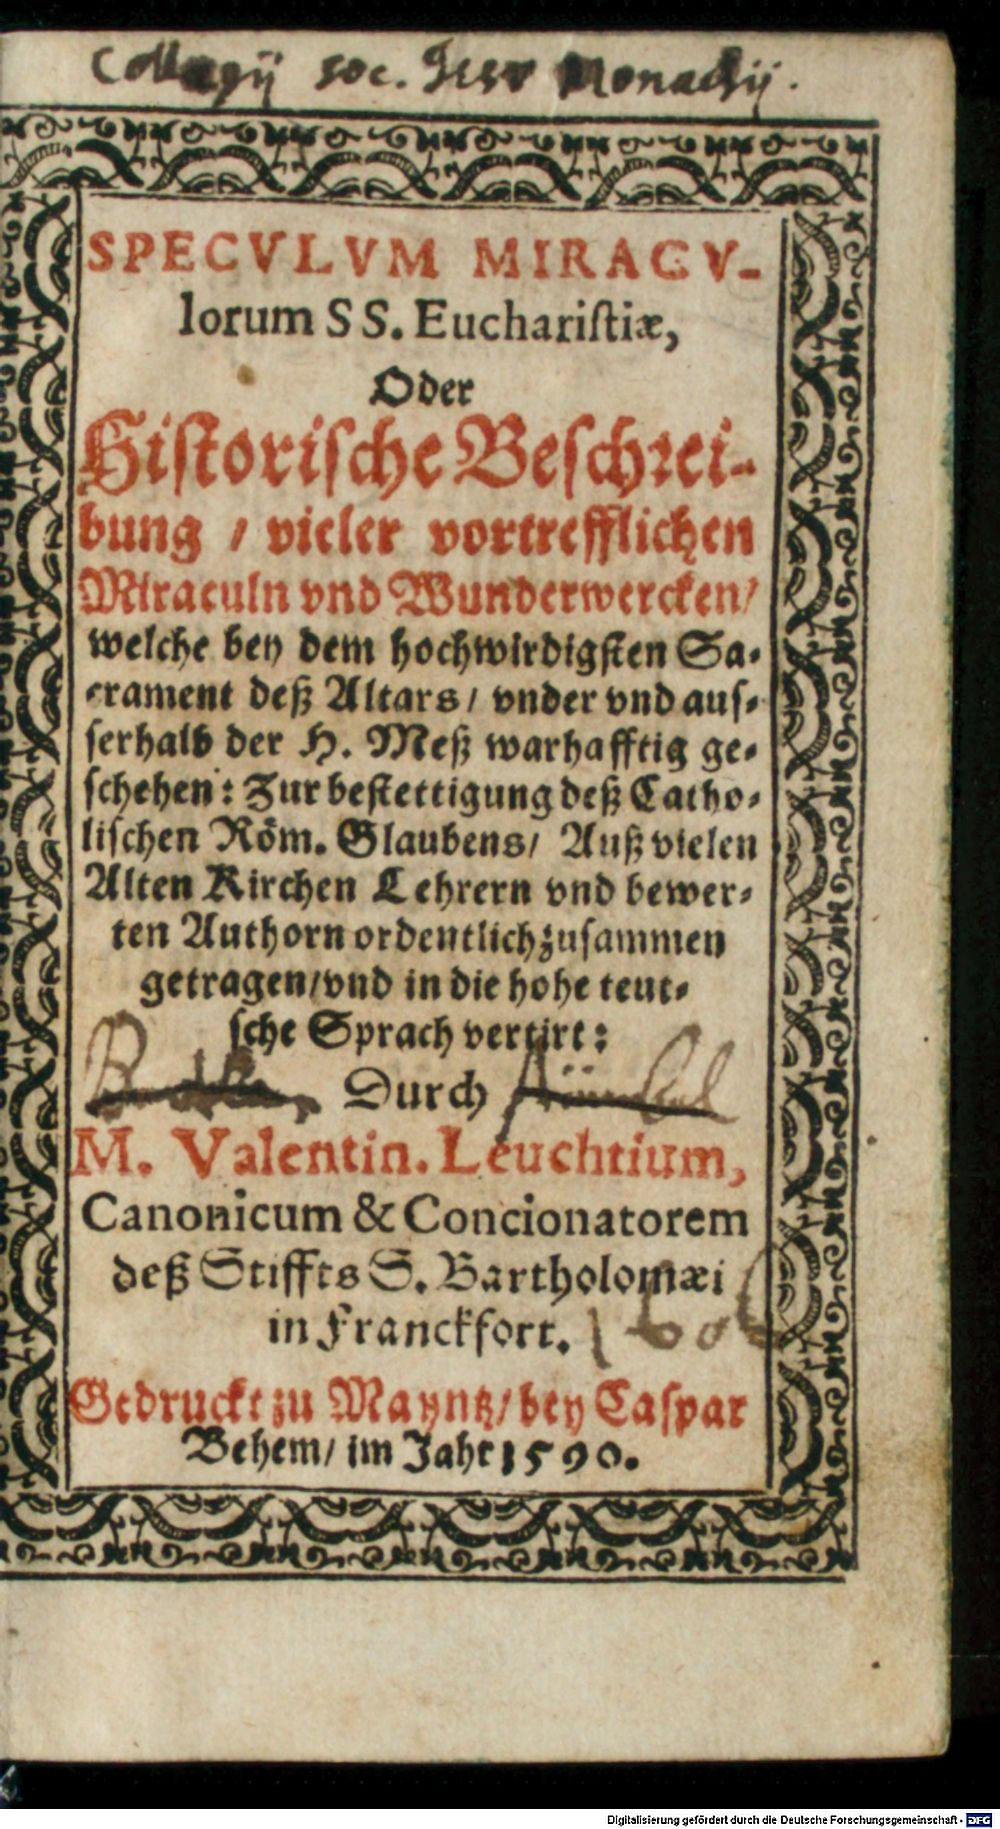 Collegij soc. Iesv Monachij.
SPECVLVM MIRACV-
lorum SS. Euchariſtiæ,
Oder
Hiſtoriſche Beſchrei-
bung / vieler vortrefflichen
Miraculn vnd Wunderwercken/
welche bey dem hochwirdigſten Sa-
crament deß Altars / vnder vnd auſ-
ſerhalb der H. Meß warhafftig ge-
ſchehen: Zur beſtettigung deß Catho-
liſchen Röm. Glaubens/ Auß vielen
Alten Kirchen Lehrern vnd bewer-
ten Authorn ordentlich zuſammen
getragen/vnd in die hohe teut-
ſche Sprach vertirt:
Durch
M. Valentin. Leuchtium,
Canonicum & Concionatorem
deß Stiffts S. Bartholomæi
in Franckfort. 1606
Gedruckt zu Mayntz/ bey Caſpar
Behem/ im Jahr 1590.
Digitalisierung gefördert durch die Deutsche Forschungsgemeinschaft - DFG